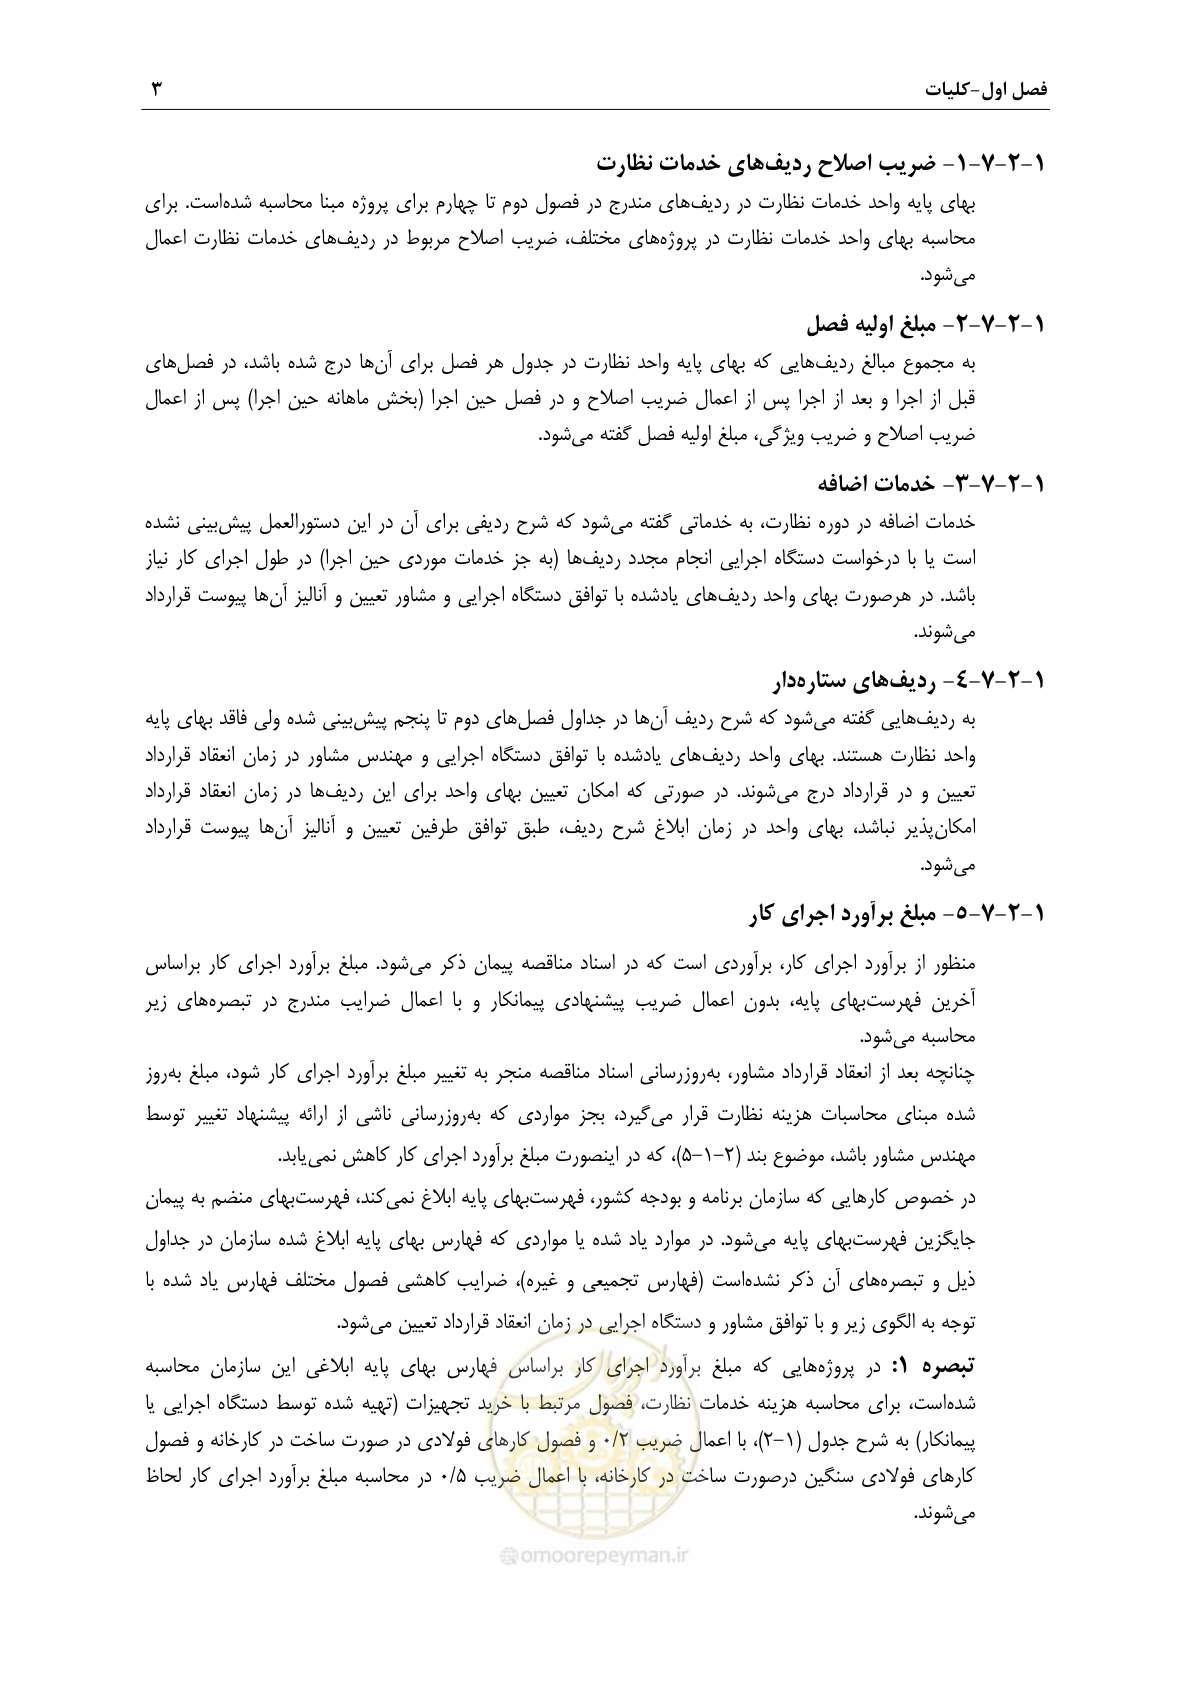 فصل اول-کلیات ۳
۱-۲-۷-۱- ضریب اصلاح ردیف‌های خدمات نظارت
بهای پایه واحد خدمات نظارت در ردیف‌های مندرج در فصول دوم تا چهارم برای پروژه مبنا محاسبه شده‌است. برای
محاسبه بهای واحد خدمات نظارت در پروژه‌های مختلف، ضریب اصلاح مربوط در ردیف‌های خدمات نظارت اعمال
می‌شود.
۱-۲-۷-۲- مبلغ اولیه فصل
به مجموع مبالغ ردیف‌هایی که بهای پایه واحد نظارت در جدول هر فصل برای آن‌ها درج شده باشد، در فصل‌های
قبل از اجرا و بعد از اجرا پس از اعمال ضریب اصلاح و در فصل حین اجرا (بخش ماهانه حین اجرا) پس از اعمال
ضریب اصلاح و ضریب ویژگی، مبلغ اولیه فصل گفته می‌شود.
۱-۲-۷-۳- خدمات اضافه
خدمات اضافه در دوره نظارت، به خدماتی گفته می‌شود که شرح ردیفی برای آن در این دستورالعمل پیش‌بینی نشده
است یا با درخواست دستگاه اجرایی انجام مجدد ردیف‌ها (به جز خدمات موردی حین اجرا) در طول اجرای کار نیاز
باشد. در هرصورت بهای واحد ردیف‌های یادشده با توافق دستگاه اجرایی و مشاور تعیین و آنالیز آن‌ها پیوست قرارداد
می‌شوند.
۱-۲-۷-٤- ردیف‌های ستاره‌دار
به ردیف‌هایی گفته می‌شود که شرح ردیف آن‌ها در جداول فصل‌های دوم تا پنجم پیش‌بینی شده ولی فاقد بهای پایه
واحد نظارت هستند. بهای واحد ردیف‌های یادشده با توافق دستگاه اجرایی و مهندس مشاور در زمان انعقاد قرارداد
تعیین و در قرارداد درج می‌شوند. در صورتی که امکان تعیین بهای واحد برای این ردیف‌ها در زمان انعقاد قرارداد
امکان‌پذیر نباشد، بهای واحد در زمان ابلاغ شرح ردیف، طبق توافق طرفین تعیین و آنالیز آن‌ها پیوست قرارداد
می‌شود.
۱-۲-۷-۵- مبلغ برآورد اجرای کار
منظور از برآورد اجرای کار، برآوردی است که در اسناد مناقصه پیمان ذکر می‌شود. مبلغ برآورد اجرای کار براساس
آخرین فهرست‌بهای پایه، بدون اعمال ضریب پیشنهادی پیمانکار و با اعمال ضرایب مندرج در تبصره‌های زیر
محاسبه می‌شود.
چنانچه بعد از انعقاد قرارداد مشاور، به‌روزرسانی اسناد مناقصه منجر به تغییر مبلغ برآورد اجرای کار شود، مبلغ به‌روز
شده مبنای محاسبات هزینه نظارت قرار می‌گیرد، بجز مواردی که به‌روزرسانی ناشی از ارائه پیشنهاد تغییر توسط
مهندس مشاور باشد، موضوع بند (۲-۱-۵)، که در اینصورت مبلغ برآورد اجرای کار کاهش نمی‌یابد.
در خصوص کارهایی که سازمان برنامه و بودجه کشور، فهرست‌بهای پایه ابلاغ نمی‌کند، فهرست‌بهای منضم به پیمان
جایگزین فهرست‌بهای پایه می‌شود. در موارد یاد شده یا مواردی که فهارس بهای پایه ابلاغ شده سازمان در جداول
ذیل و تبصره‌های آن ذکر نشده‌است (فهارس تجمیعی و غیره)، ضرایب کاهشی فصول مختلف فهارس یاد شده با
توجه به الگوی زیر و با توافق مشاور و دستگاه اجرایی در زمان انعقاد قرارداد تعیین می‌شود.
تبصره ۱: در پروژه‌هایی که مبلغ برآورد اجرای کار براساس فهارس بهای پایه ابلاغی این سازمان محاسبه
شده‌است، برای محاسبه هزینه خدمات نظارت، فصول مرتبط با خرید تجهیزات (تهیه شده توسط دستگاه اجرایی یا
پیمانکار) به شرح جدول (۱-۲)، با اعمال ضریب ۰/۲ و فصول کارهای فولادی در صورت ساخت در کارخانه و فصول
کارهای فولادی سنگین درصورت ساخت در کارخانه، با اعمال ضریب ۰/۵ در محاسبه مبلغ برآورد اجرای کار لحاظ
می‌شوند.
@omoorepeyman.ir